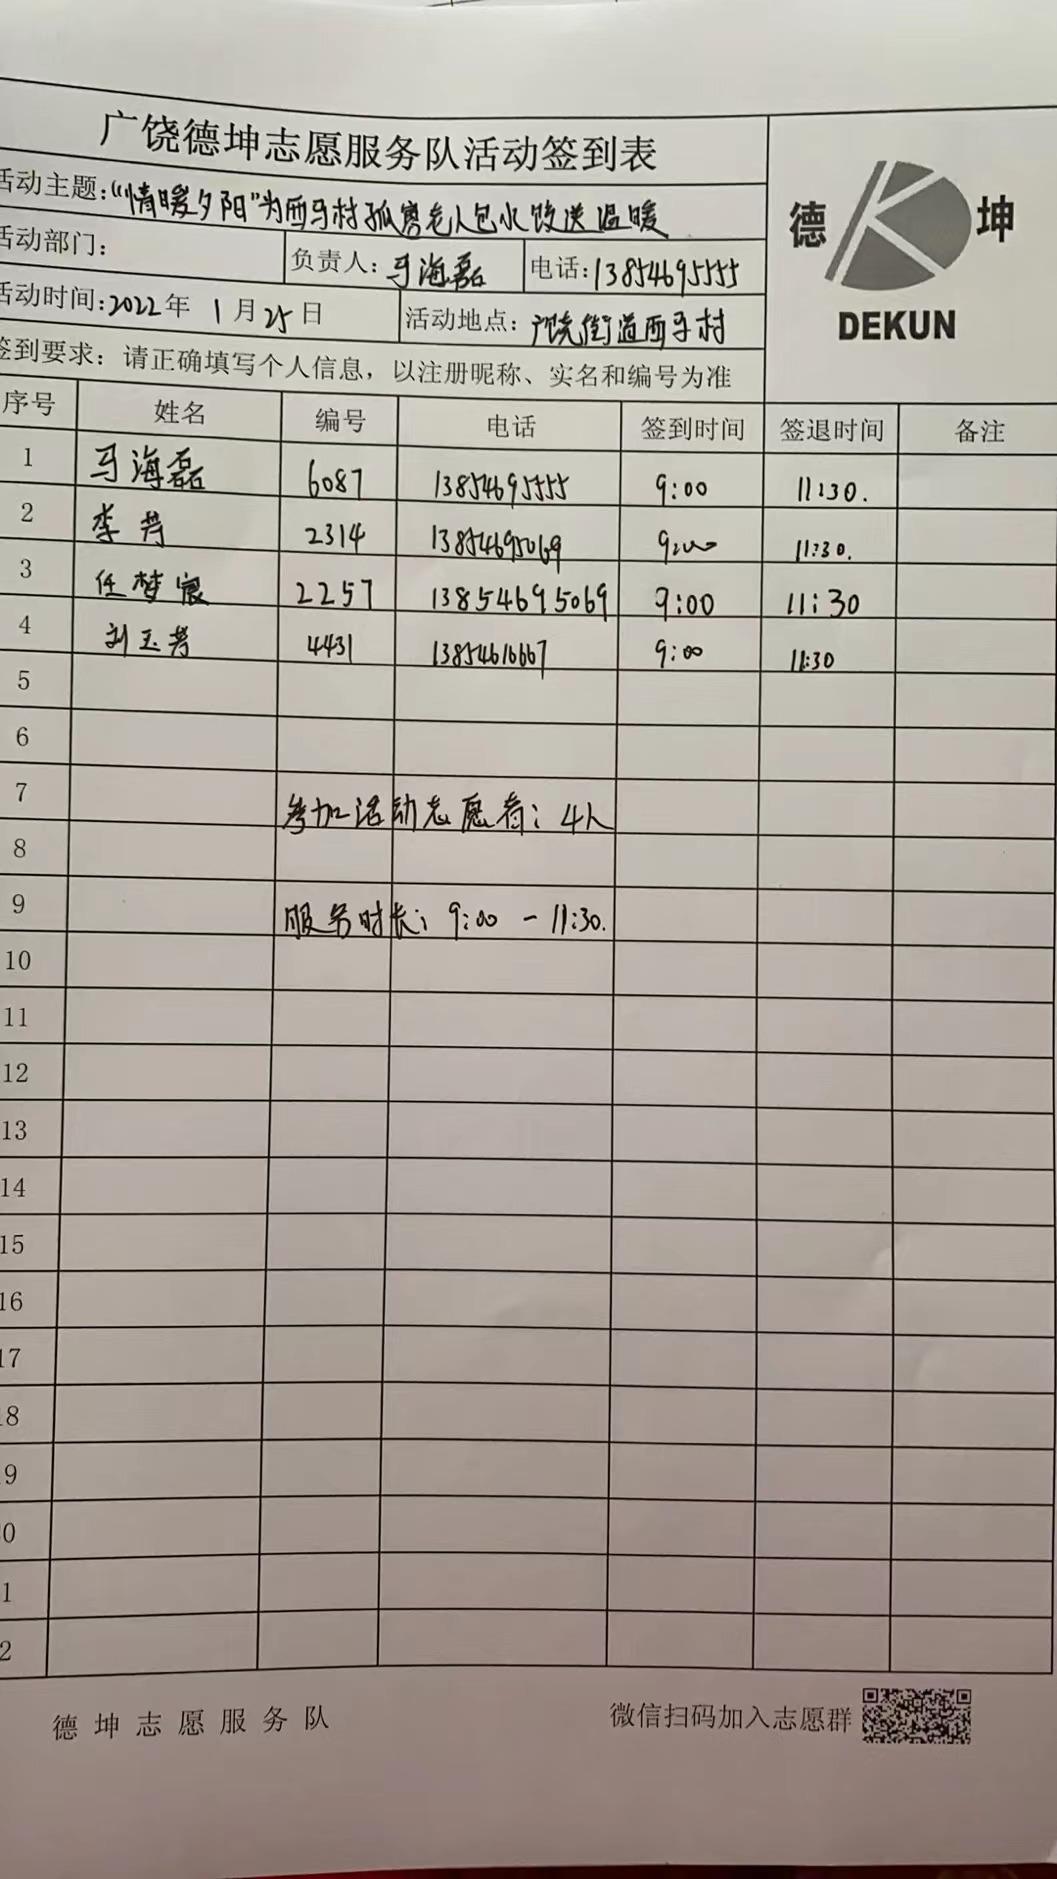 广饶德坤志愿服务队活动签到表
活动主题:“情暖夕阳”为西马村孤寡老人包水饺送温暖
德 坤
DEKUN
活动部门: 负责人: 马海磊 电话: 13854695555
活动时间: 2022年 1月25日 活动地点: 广饶街道西马村
签到要求: 请正确填写个人信息, 以注册昵称、实名和编号为准
序号 姓名 编号 电话 签到时间 签退时间 备注
1 马海磊 6087 13854695555 9:00 11:30.
2 李芳 2314 13854695069 9:00 11:30.
3 任梦宸 2257 13854695069 9:00 11:30
4 刘玉芳 4431 13854616667 9:00 11:30
5
6
7 参加活动志愿者: 4人
8
9 服务时长: 9:00 - 11:30.
10
11
12
13
14
15
16
17
18
9
0
1
2
德坤志愿服务队 微信扫码加入志愿群